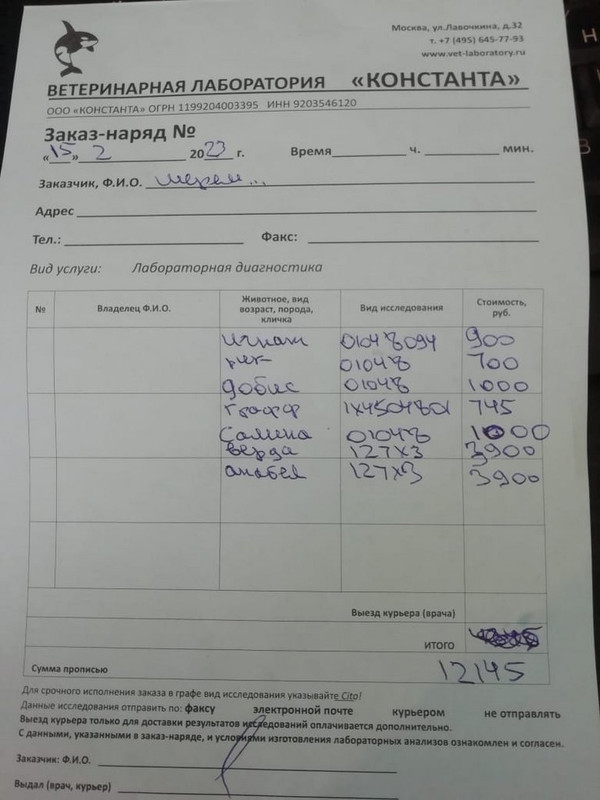 Москва, ул.Лавочкина, д.32
т. +7 (495) 645-77-93
www.vet-laboratory.ru
ВЕТЕРИНАРНАЯ ЛАБОРАТОРИЯ «КОНСТАНТА»
ООО «КОНСТАНТА» ОГРН 1199204003395 ИНН 9203546120
Заказ-наряд №
«15» 2 2023 г. Время ч. мин.
Заказчик, Ф.И.О.
Адрес
Тел.: Факс:
Вид услуги: Лабораторная диагностика
№ Владелец Ф.И.О. Животное, вид возраст, порода, кличка Вид исследования Стоимость, руб.
игнат 900
рик 700
Добис 1000
Графф 745
Салина 1000
Верда 127х3 3900
127х3 3900
Выезд курьера (врача)
ИТОГО
Сумма прописью 12145
Для срочного исполнения заказа в графе вид исследования указывайте Cito!
Данные исследования отправить по: факсу электронной почте курьером не отправлять
Выезд курьера только для доставки результатов исследований оплачивается дополнительно.
С данными, указанными в заказ-наряде, и условиями изготовления лабораторных анализов ознакомлен и согласен.
Заказчик: Ф.И.О.
Выдал (врач, курьер)